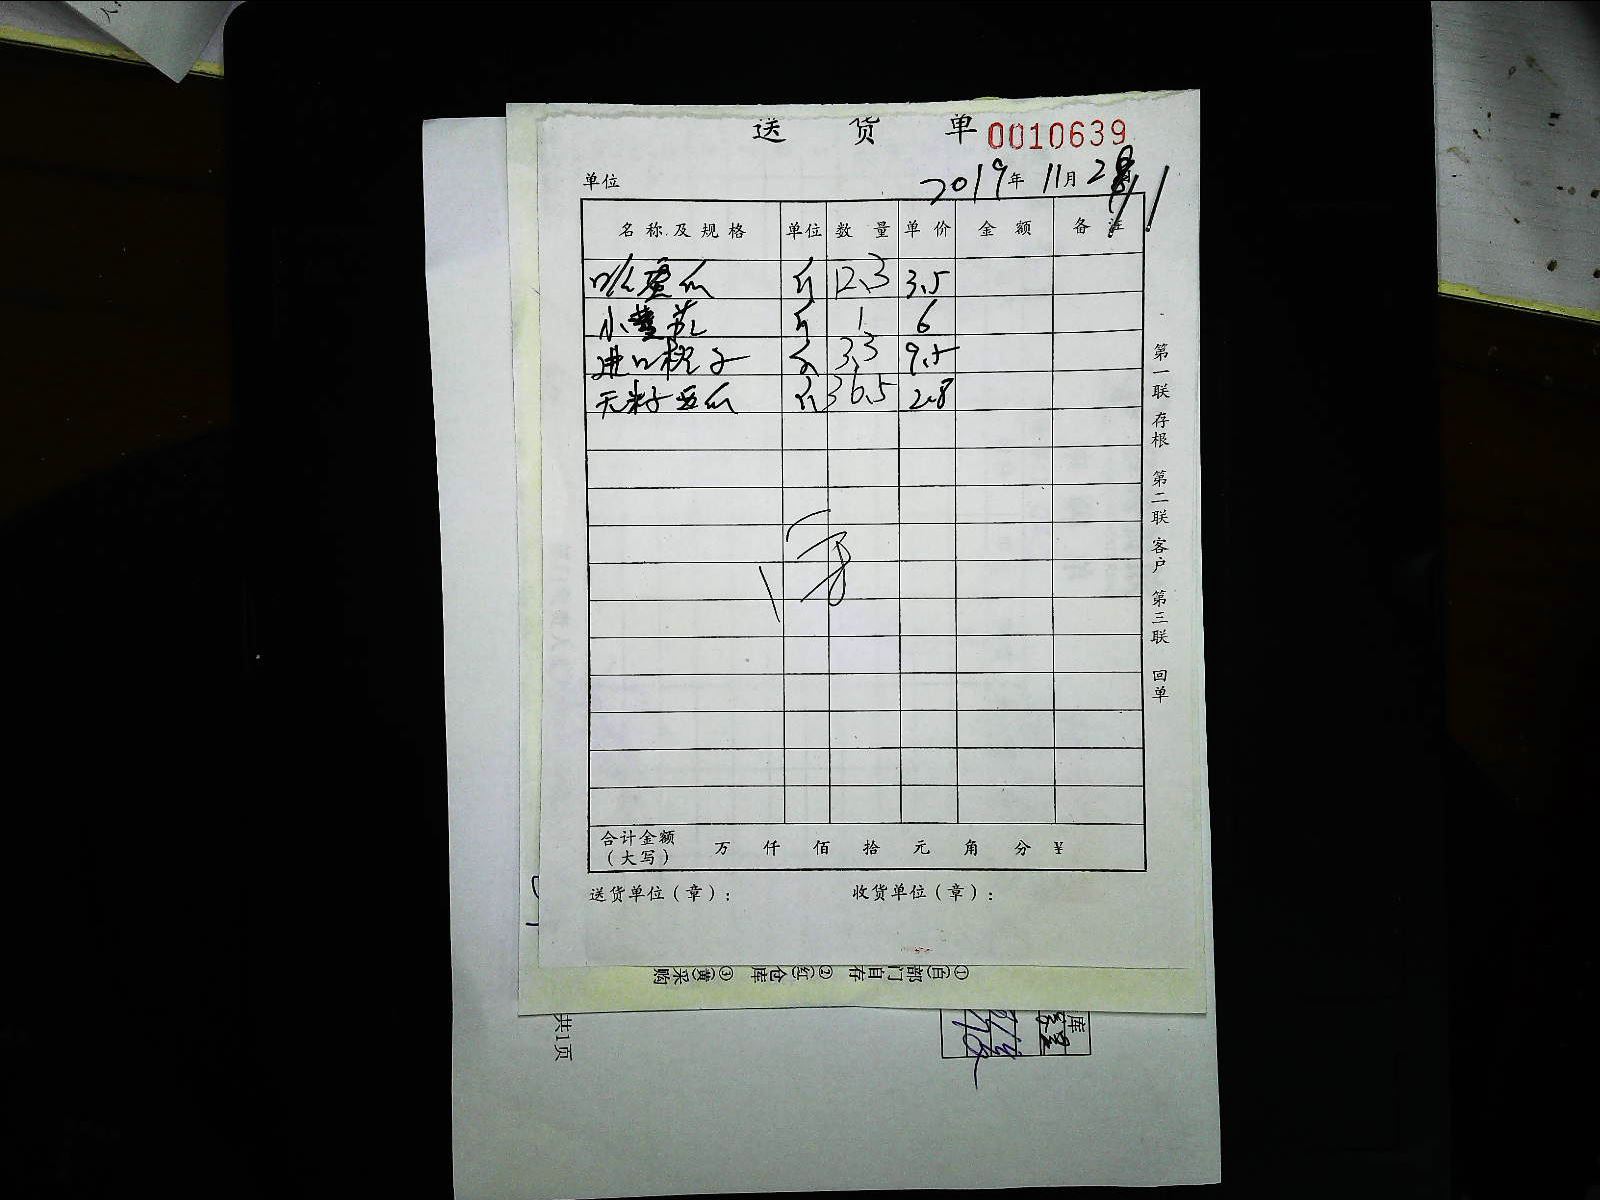 送 货 单 0010639
单位 2019年 11月 28日
名称及规格 单位 数量 单价 金额 备注
哈蜜瓜 斤 12.3 3.5
小黄芪 斤 1 6
进口橙子 斤 3.3 9.5
无籽西瓜 斤 36.5 2.8
合计金额
（大写） 万 仟 佰 拾 元 角 分 ¥
送货单位（章）： 收货单位（章）：
第一联 存根 第二联 客户 第三联 回单
①(白)部门自存 ②(红)仓库 ③(黄)采购
共1页
库